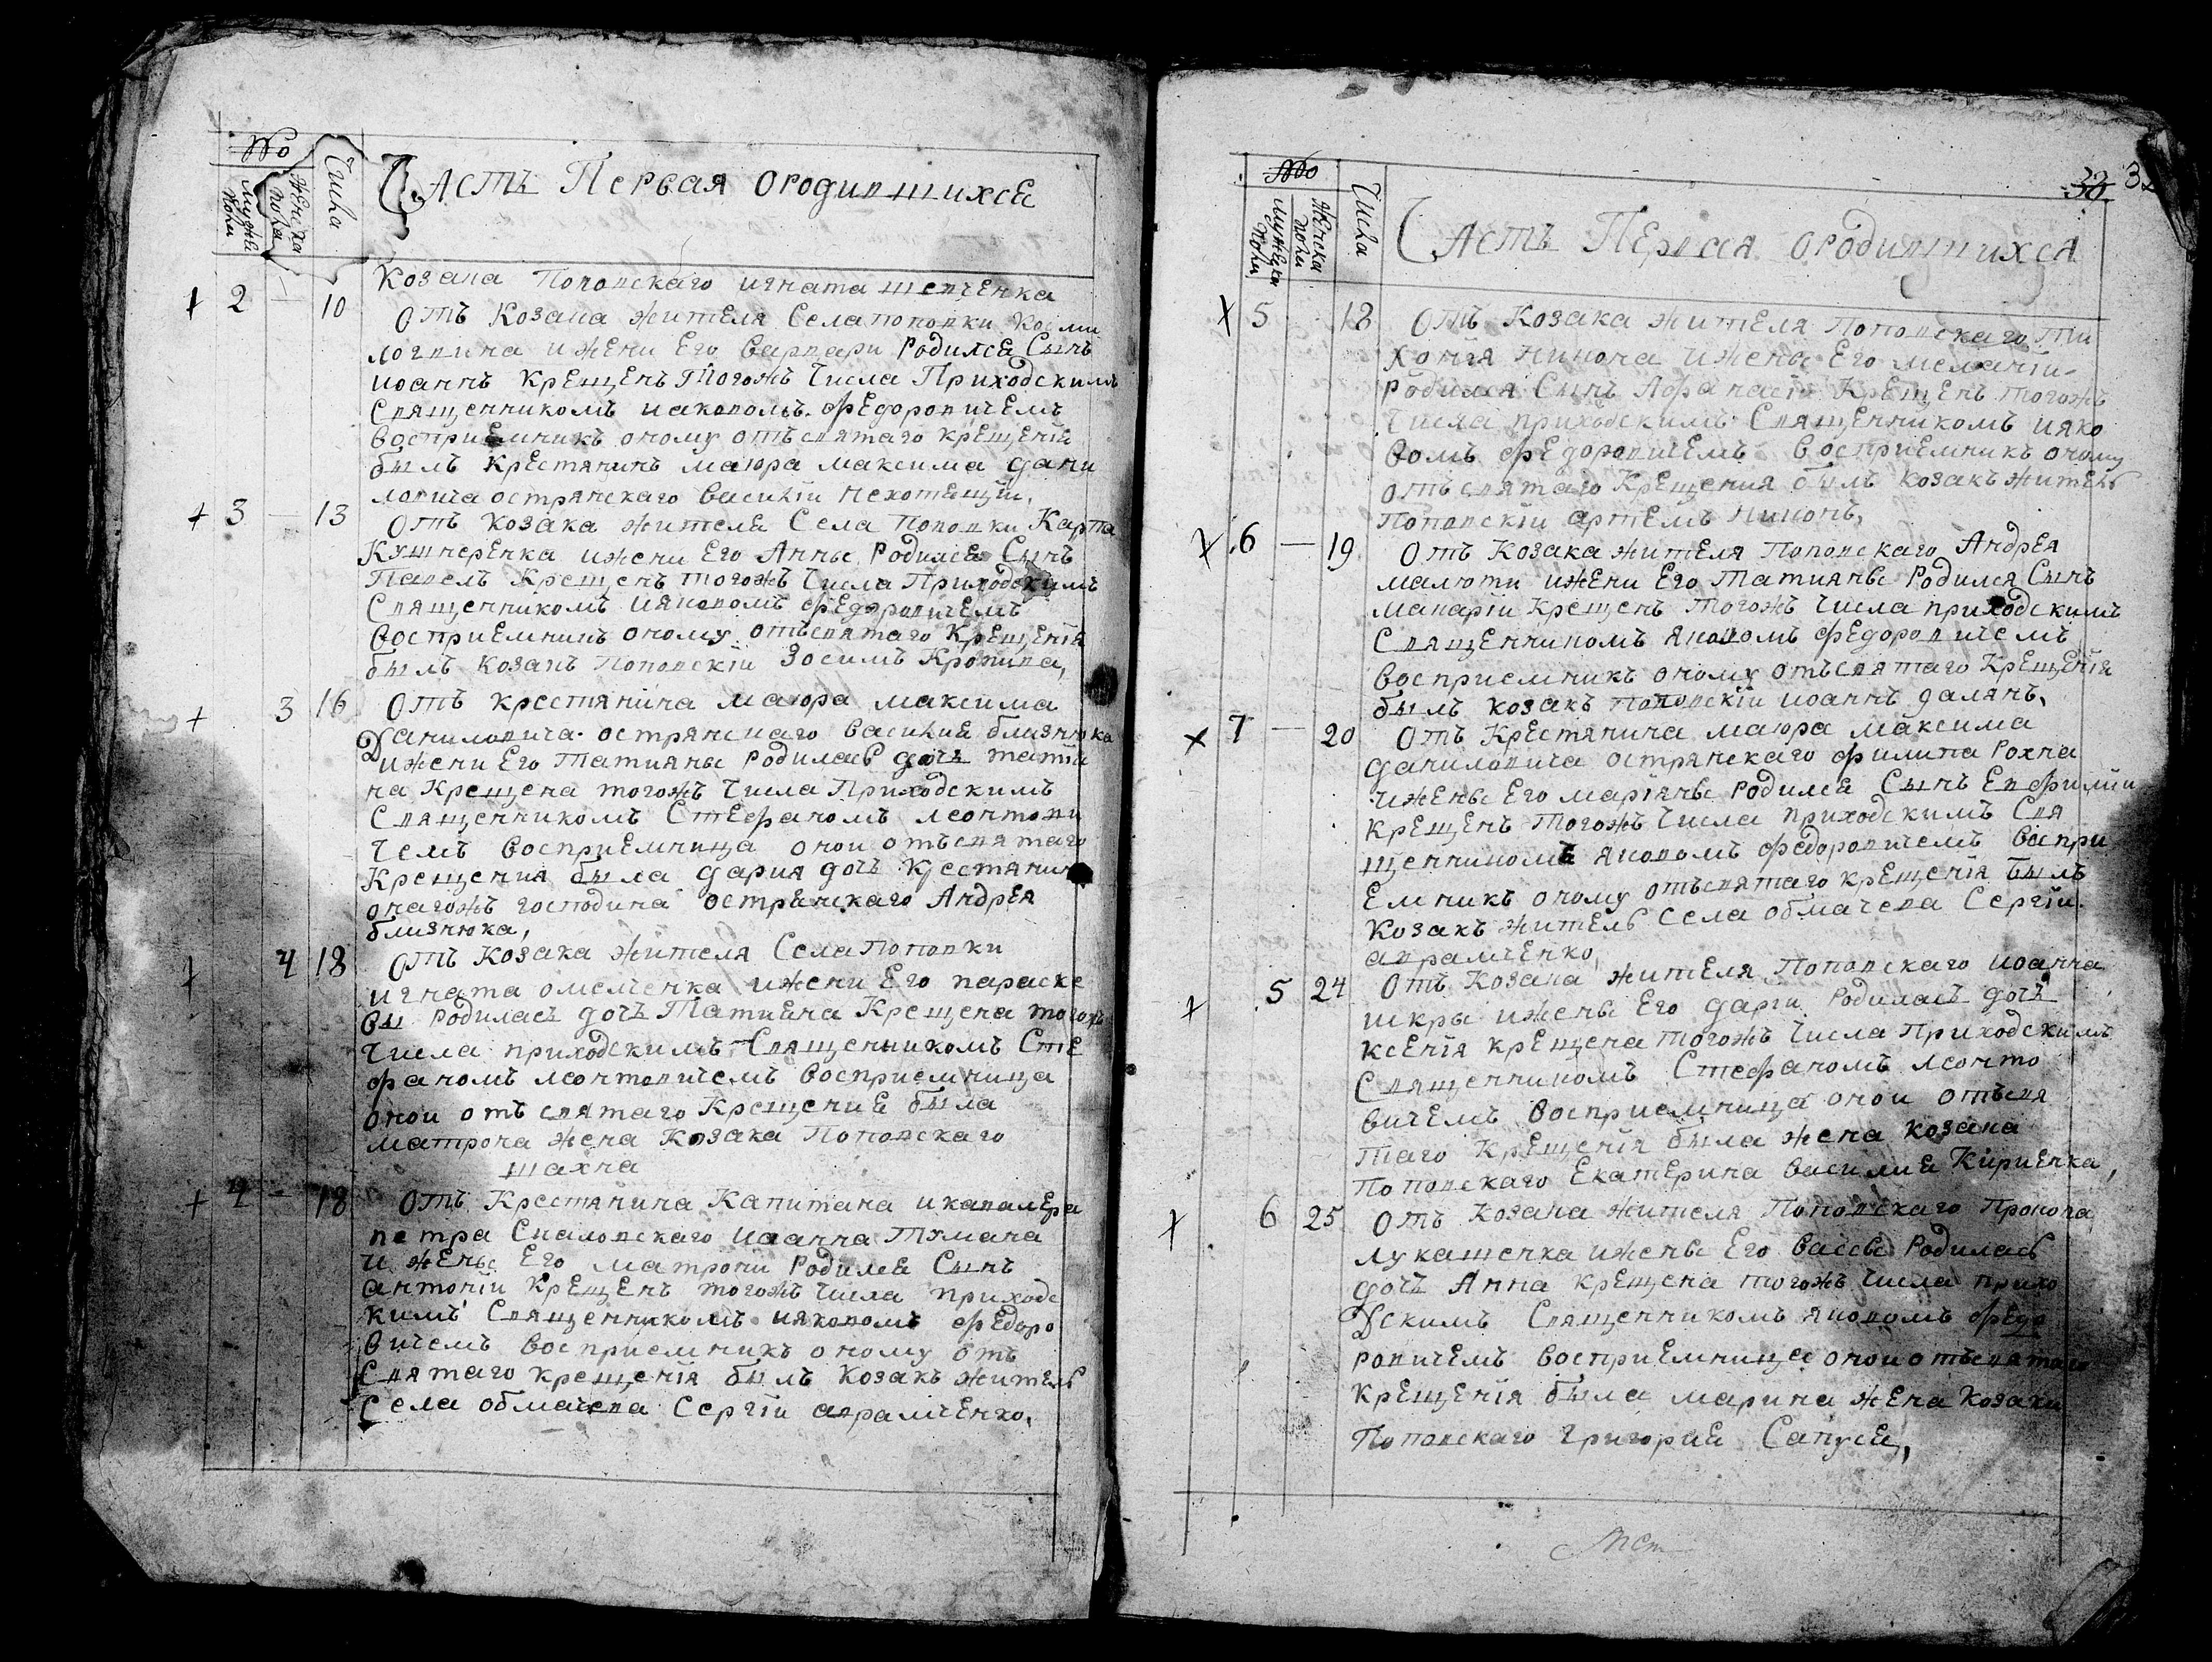 No
Мужеска полу
Женска пола
Числа
Часть Первая ородившихсѧ
Козака Поповскаго игната шевченка
+ 2 — 10 Отъ Козака жителя Села поповки Косми
логвина ижени Его варвари Родилсѧ Сынъ
иоаннъ Крещенъ Тогожъ Числа Приходскимъ
Священникомъ иаковомъ федоровичемъ
восприемникъ оному отъсвятаго крещенія
былъ Крестянинъ маюра максима дани
ловича острянскаго василій нехотящій,
+ 3 — 13 Отъ козака жителя Села поповки Карпа
Кушнеренка ижени Его Анны Родилсѧ Сынъ
Павелъ Крещенъ тогожъ Числа Приходскимъ
Священникомъ иаковомъ федоровичемъ
восприемникъ оному отъсвятаго Крещенія
былъ козакъ Поповскій Зосимъ Кропива,
+ 3 16 Отъ крестянина маюра максима
Даниловича острянскаго василия близнюка
ижени Его Татияны Родилась дочъ татия
на Крещена тогожъ Числа Приходскимъ
Священникомъ Стефаномъ леонтови
чемъ восприемница оной отъсвятаго
Крещения была дария дочъ Крестянина
онагожъ господина острянскаго Андрея
близнюка,
+ 4 18 Отъ Козака жителя Села поповки
игната омелченка ижени Его параске
вы Родиласъ дочъ Татияна Крещена тогожъ
Числа приходскимъ Священникомъ Сте
фаномъ леонтовичемъ восприемница
оной отъ святаго Крещения была
матрона жена Козака Поповскаго
шахна
+ 4 — 18 Отъ Крестянина Капитана икавалера
петра Скаловскаго иоанна Тумана
и жены Его матрони Родилсѧ Сынъ
антоній Крещенъ тогожъ Числа приходс
кимъ Священникомъ иаковомъ федоро
вичемъ восприемникъ оному отъ
Святаго крещенія былъ Козакъ житель
Села обмачева Сергій авраменко,
33 32
No
Мужеска полу
Женска полу
Числа
Часть Первая ородившихся
+ 5 18 Отъ Козака жителя Поповскаго Ти
хонія нинона ижены Его меланіи
Родился Сынъ Афанасій Крещенъ тогожъ
Числа приходскимъ Священникомъ иако
вомъ федоровичемъ восприемникъ оному
отъсвятаго Крещения былъ козакъ житель
Поповскій артемъ нинонъ,
+ 6 — 19 Отъ Козака жителя Поповскаго Андрея
малюти ижени Его Татияны Родился Сынъ
макарій Крещенъ тогожъ Числа приходскимъ
Священникомъ яковомъ федоровичемъ
восприемникъ оному отъсвятаго Крещенія
былъ козакъ поповскій иоаннъ далянъ,
+ 7 — 20 Отъ Крестянина маюра максима
даниловича острянскаго филипа Рохна
ижены Его маріяны Родилсѧ Сынъ Евфимій
крещенъ Тогожъ Числа приходскимъ Свя
щенникомъ яковомъ федоровичемъ воспри
емникъ оному отъсвятаго крещенія былъ
козакъ житель Села обмачева Сергій
авраменко,
+ 5 24 Отъ Козака жителя Поповскаго иоанна
шкры ижены Его даріи Родиласъ дочъ
ксенія крещена тогожъ Числа Приходскимъ
Священникомъ Стефаномъ леонто
вичемъ восприемница оной отъсвя
таго Крещенія была жена козака
Поповскаго Екатерина василия Кириенка,
+ 6 25 Отъ Козака жителя Поповскаго Прокопа
лукашенка ижены Его вассы Родилась
дочъ Анна крещена тогожъ Числа прихо
Дскимъ Священникомъ яковомъ федо
ровичемъ восприемница оной отъсвятаго
крещенія была марина жена козака
Поповскаго григорія Сапуся,